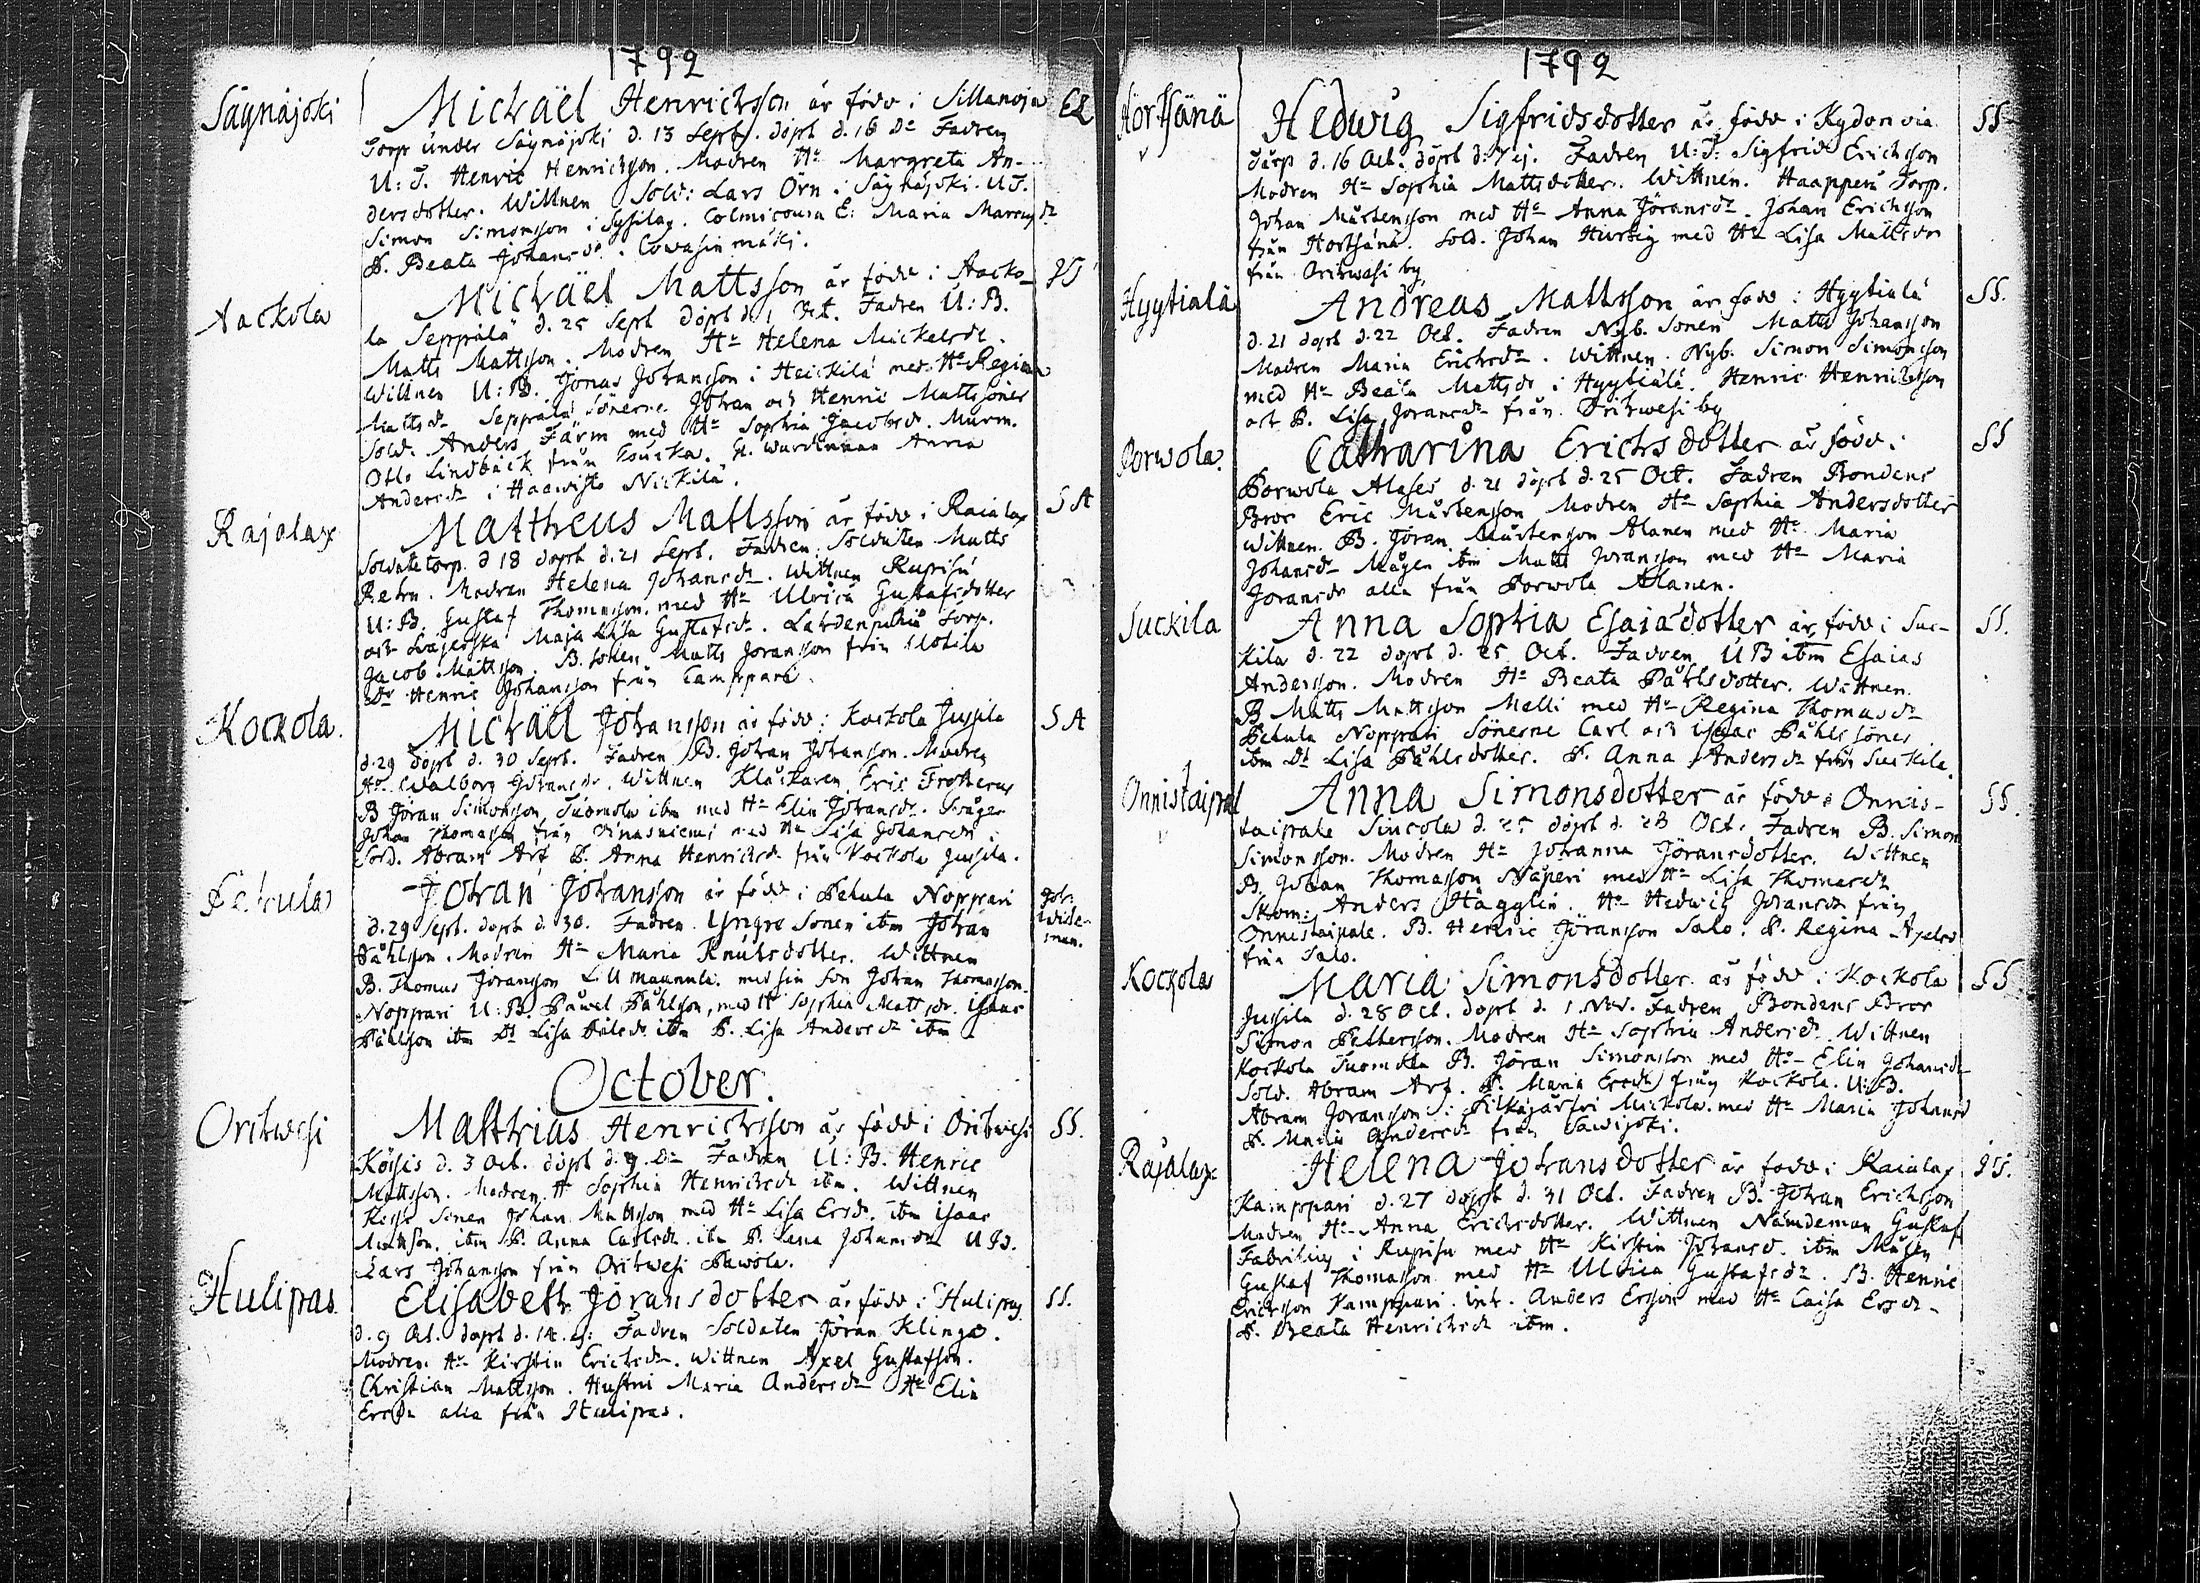 1792
Säynäjoki
Mickäel Henricksson är född i Sillanoja
EL
Torp under Säynäjoki d. 13 Sept. döpt d. 16 Do Fadren
U: T. Henric Henricsson. Modren Hu Margreta An-
dersdotter. Wittnen Sold: Lars Örn i Säynäjoki. U.T.
Simon Simonsson i Sysilax. E: Maria Marcusdr
P. Beata Johansdr.
Aackola
Mickäel Mattsson är född i Aacko-
la Seppälä d. 25 Sept döpt d. 1 Oct. Fadren U: B.
Matts Mattsson. Modren Hu Helena Mickelsdr.
Wittnen U: B. Jonas Johansson i Heickilä med Hu Regina
Mattsdr Seppälä Sönerne Johan och Henric Mattssöner
Sold. Anders Färm med Hu Sophia Jacobsdr. Murm.
Otto Lindbäck från Anna
Andersdr i Haawisto Nickilä.
Rajalax
Mattheus Mattsson är född i Raialax
SA
Soldatetorp. d 18 döpt d. 21 Sept. Fadren Soldaten Matts
Modren Helena Johansdr. Wittnen Rupisu
U: B. Gustaf Thomasson. med Hu Ulrica Gustafsdotter
och Maja Lisa Gustafsdr. Torp.
Jacob Mattsson. B. sonen Matts Joransson från
Dr Henric Johansson från Camppari.
Kockola.
Mickäel Johansson är född i Kockola Jussila
SA
d. 29 döpt d. 30 Sept. Fadren B. Johan Johansson. Modren
Hu Walborg Göransdr. Wittnen Klåckaren Eric Frotherus
B Jöran Simonsson, Tuomola ibm med Hu Elin Johansdr.
Johan Thomasson från med Hu Lisa Johansdr
Sold. Abram Arf P. Anna Henricsdr från Kockola Jussila.
Pekula
Johan Johansson är född i Pekula Noppari
Joh.
Wide-
man.
d. 29 Sept. döpt d. 30. Fadren Yngre Sonen ibm Johan
Påhlsson. Modren Hu Maria Knutsdotter. Wittnen
B. Thomas Joransson med sin son Johan Thomasson.
Noppari U: B. Påwel Påhlsson, med Hu Sophia Mattsdr. Isaac
Påhlsson ibm Dr Lisa Pålsdr ibm P. Lisa Andersdr ibm
October.
Orihwesi
Matthias Henricksson är född i Orihwesi
SS.
Köisis d. 3 Oct. döpt d. 9 Do Fadren U: B. Henric
Mattsson. Modren H Sophia Henricsdr ibm. Wittnen
Sonen Johan Mattsson med Hu Lisa Ersdr. ibm Isaac
ibm P. Anna Carlsdr. ibm P. Johansdr
Lars Johansson från Orihwesi Pawola.
Hulipas
Elisabeth Joransdotter är född i Hulipas
SS.
d. 9 Oct. döpt d. 14. ej: Fadren Soldaten Jöran Klinga.
Modren Hu Kirstin Ericsdr. Wittnen Axel Gustafsson.
Christian Mattsson. Hustru Maria Andersdr Hu Elin
Ersdr alla från Hulipas.
1792
Hedwig Sigfridsdotter är född i Kydonoia
SS
Torp d. 16 Oct. döpt Fadren U: T: Sigfrid Ericsson
Modren Hu Sophia Mattsdotter. Wittnen. Haapperi Torp.
Johan Mårtensson med Hu Anna Jöransdr. Johan Ericsson
från Sold. Johan med Hu Lisa Mattsdr
från Orihwesi by
Hyytialä
Andreas Mattsson är född i Hyytialä
SS.
d. 21 döpt d. 22 Oct. Fadren Nyb. Sonen Matts Johansson
Modren Maria Ericsdr. Wittnen. Nyb. Simon Simonsson
med Hu Beata Mattsdr i Hyytiälä. Henric Henricksson
och P. Lisa Joransdr från Orihwesi by
Porwola.
Catharina Erichsdotter är född i
SS
Porwola Alases d. 21 döpt d. 25 Oct. Fadren Bondens
Bror Eric Mårtensson Modren Hu Sophia Andersdotter
Wittnen. B. Jöran Mårtensson Alanen med Hu Maria
Johansdr Mågen ibm Matts Joransson med Hu Maria
Joransdr alla från Porwola Alanen.
Suckila
Anna Sophia Esaiadotter är född i Suc-
SS.
kila d. 22 döpt d. 25 Oct. Fadren UB ibm Esaias
Andersson. Modren Hu Beata Påhlsdotter. Wittnen.
B Matts Mattsson Mælli med Hu Regina Thomasdr
Pekula Noppari Sönerne Carl och Isaac Påhlssöner
ibm Dr Lisa Påhlsdotter. P. Anna Andersdr från Suckila.
Onnistaipal
Anna Simonsdotter är född i Onnis-
SS.
taipale Sincola d. 25 döpt d. 28 Oct. Fadren B. Simon
Simonsson. Modren Hu Johanna Jöransdotter. Wittnen
B. Johan Thomasson Näperi med Hu Lisa Thomasdr
Skom: Anders Hägglin. Hu Hedwig Johansdr från
Onnistaipale. B. Henric Jöransson Salo. P. Regina Axelsd
från Salo.
Kockola
Maria Simonsdotter är född i Kockola
SS
Jussila d. 28 Oct. döpt d. 1 Nov. Fadren Bondens Bror
Simon Pettersson. Modren Hu Sophia Andersdr. Wittnen
Kockola Tuomola B. Jöran Simonsson med Hu Elin Johansdr
Sold. Abram Arf. P. Maria Ersdr från Kockola. U: B.
Abram Joransson i Pitkäjärfvi Mickola. med Hu Maria Johansd
P. Maria Andersdr från Sawijoki.
Rajalax
Helena Johansdotter är född i Raialax
Kamppari d. 27 döpt d. 31 Oct. Fadren B. Johan Ericsson
Modren Hu Anna Ericsdotter. Wittnen Nämdeman Gustaf
i Rupisu med Hu Kirstin Johansd. ibm Mågen
Gustaf Thomasson med Hu Ulrica Gustafsdr. B. Henric
Ericsson Kamppari. Inh. Anders Ersson med Hu Caisa Ersdr
P. Beata Henricsdr ibm.